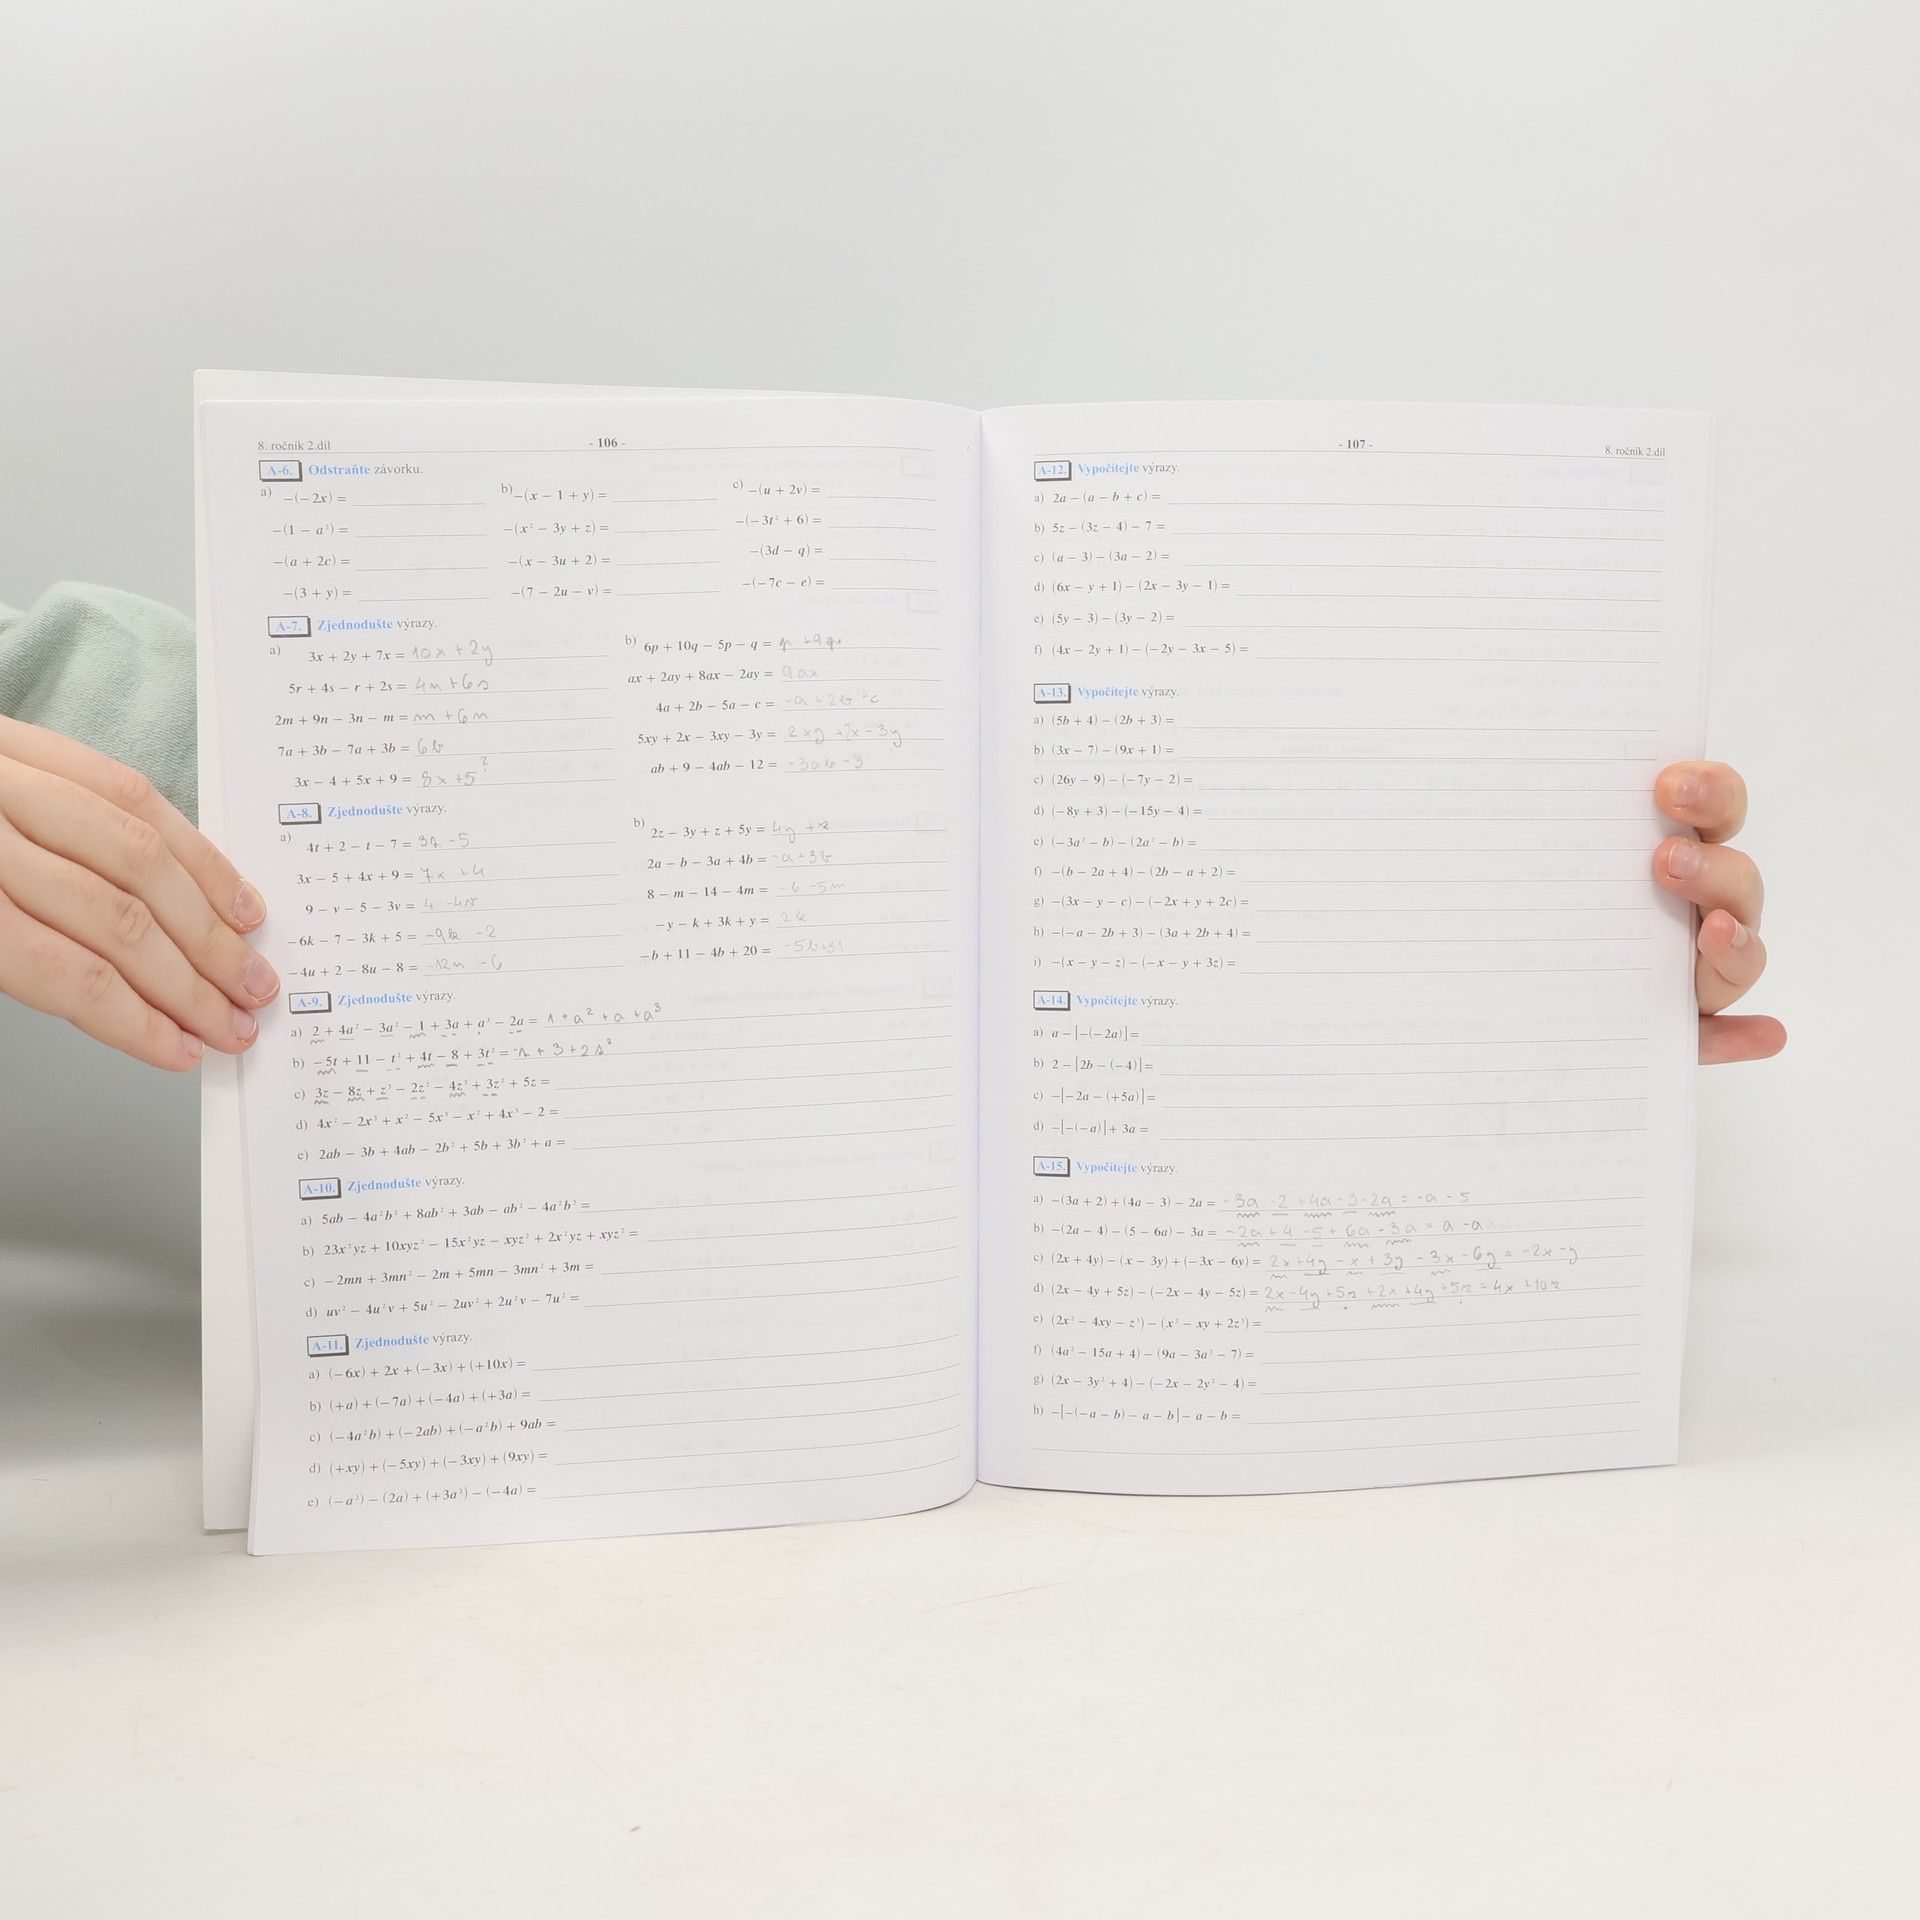 8. ročník 2.díl - 106 -
A-6. Odstraňte závorku.
a) −(−2x) = b) −(x − 1 + y) = c) −(u + 2v) =
−(1 − a²) = −(x² − 3y + z) = −(−3t² + 6) =
−(a + 2c) = −(x − 3u + 2) = −(3d − q) =
−(3 + y) = −(7 − 2u − v) = −(−7c − e) =
A-7. Zjednodušte výrazy.
a) 3x + 2y + 7x = 10x + 2y b) 6p + 10q − 5p − q = p + 9q
5r + 4s − r + 2s = 4r + 6s ax + 2ay + 8ax − 2ay = 9ax
2m + 9n − 3n − m = m + 6n 4a + 2b − 5a − c = -a + 2b - c
7a + 3b − 7a + 3b = 6b 5xy + 2x − 3xy − 3y = 2xy + 2x - 3y
3x − 4 + 5x + 9 = 8x + 5 ? ab + 9 − 4ab − 12 = -3ab - 3
A-8. Zjednodušte výrazy.
a) 4t + 2 − t − 7 = 3t - 5 b) 2z − 3y + z + 5y = 4y + z
3x − 5 + 4x + 9 = 7x + 4 2a − b − 3a + 4b = -a + 3b
9 − v − 5 − 3v = 4 - 4v 8 − m − 14 − 4m = -6 - 5m
−6k − 7 − 3k + 5 = -9k - 2 −y − k + 3k + y = 2k
−4u + 2 − 8u − 8 = -12u - 6 −b + 11 − 4b + 20 = -5b+31
A-9. Zjednodušte výrazy.
a) 2 + 4a² − 3a² − 1 + 3a + a³ − 2a = 1 + a² + a + a³
b) −5t + 11 − t² + 4t − 8 + 3t² = -t + 3 + 2t²
c) 3z − 8z + z³ − 2z² − 4z³ + 3z² + 5z =
d) 4x² − 2x³ + x² − 5x³ − x² + 4x³ − 2 =
e) 2ab − 3b + 4ab − 2b² + 5b + 3b² + a =
A-10. Zjednodušte výrazy.
a) 5ab − 4a²b² + 8ab² + 3ab − ab² − 4a²b² =
b) 23x²yz + 10xyz² − 15x²yz − xyz² + 2x²yz + xyz² =
c) −2mn + 3mn² − 2m + 5mn − 3mn² + 3m =
d) uv² − 4u²v + 5u² − 2uv² + 2u²v − 7u² =
A-11. Zjednodušte výrazy.
a) (−6x) + 2x + (−3x) + (+10x) =
b) (+a) + (−7a) + (−4a) + (+3a) =
c) (−4a²b) + (−2ab) + (−a²b) + 9ab =
d) (+xy) + (−5xy) + (−3xy) + (9xy) =
e) (−a²) − (2a) + (+3a²) − (−4a) =
- 107 - 8. ročník 2.díl
A-12. Vypočítejte výrazy.
a) 2a − (a − b + c) =
b) 5z − (3z − 4) − 7 =
c) (a − 3) − (3a − 2) =
d) (6x − y + 1) − (2x − 3y − 1) =
e) (5y − 3) − (3y − 2) =
f) (4x − 2y + 1) − (−2y − 3x − 5) =
A-13. Vypočítejte výrazy.
a) (5b + 4) − (2b + 3) =
b) (3x − 7) − (9x + 1) =
c) (26y − 9) − (−7y − 2) =
d) (−8y + 3) − (−15y − 4) =
e) (−3a² − b) − (2a² − b) =
f) −(b − 2a + 4) − (2b − a + 2) =
g) −(3x − y − c) − (−2x + y + 2c) =
h) −(−a − 2b + 3) − (3a + 2b + 4) =
i) −(x − y − z) − (−x − y + 3z) =
A-14. Vypočítejte výrazy.
a) a − [−(−2a)] =
b) 2 − [2b − (−4)] =
c) −[−2a − (+5a)] =
d) −[−(−a)] + 3a =
A-15. Vypočítejte výrazy.
a) −(3a + 2) + (4a − 3) − 2a = -3a - 2 + 4a - 3 - 2a = -a - 5
b) −(2a − 4) − (5 − 6a) − 3a = -2a + 4 - 5 + 6a - 3a = a - a
c) (2x + 4y) − (x − 3y) + (−3x − 6y) = 2x + 4y - x + 3y - 3x - 6y = -2x - y
d) (2x − 4y + 5z) − (−2x − 4y − 5z) = 2x - 4y + 5z + 2x + 4y + 5z = 4x + 10z
e) (2x² − 4xy − z³) − (x² − xy + 2z³) =
f) (4a² − 15a + 4) − (9a − 3a² − 7) =
g) (2x − 3y² + 4) − (−2x − 2y² − 4) =
h) −[−(−a − b) − a − b] − a − b =